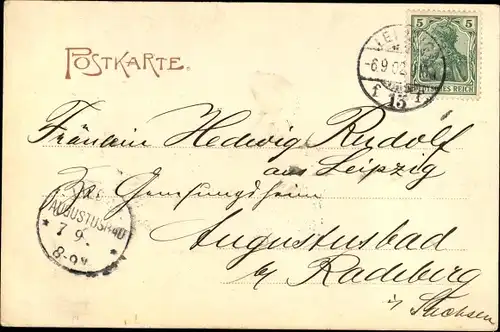 POSTKARTE.
5 5
-6.9.02
DEUTSCHES REICH
f 13 f
Fräulein Hedwig Rudolf
aus Leipzig
Genesungsheim
AUGUSTUSBAD
7 9.
8-9V.
Augustusbad
b/ Radeberg
i/ Sachsen